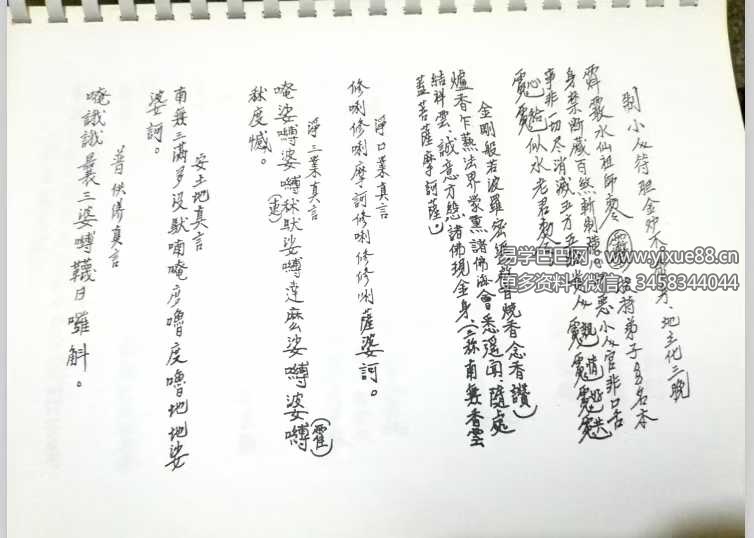 制小人符胆金炉不
地主化三晚
霹靂水仙祖師勅
弟子多名本
身禁断藏百煞斬制
惡小人官非口舌
事非一切尽消滅五方五
似水老君勅令
金剛般若波羅密經
啓首燒香念香讚
爐香乍爇法界蒙熏諸佛海會悉遥聞隨處
結祥雲、誠意方慇、諸佛現金身(三称南無香雲
蓋菩薩摩訶薩。)
淨口業真言
修唎修唎摩訶修唎修修唎薩婆訶。
淨三業真言
唵娑嚩婆嚩秫馱娑嚩達麽娑嚩婆嚩
秫度憾。
安土地真言
南無三滿多没馱喃唵度嚕度嚕地地娑
婆訶。
普供養真言
唵誐誐曩三婆嚩韈日囉斛。
易学巴巴网 www.yixue88.cn
更多资料+微信:3458344044